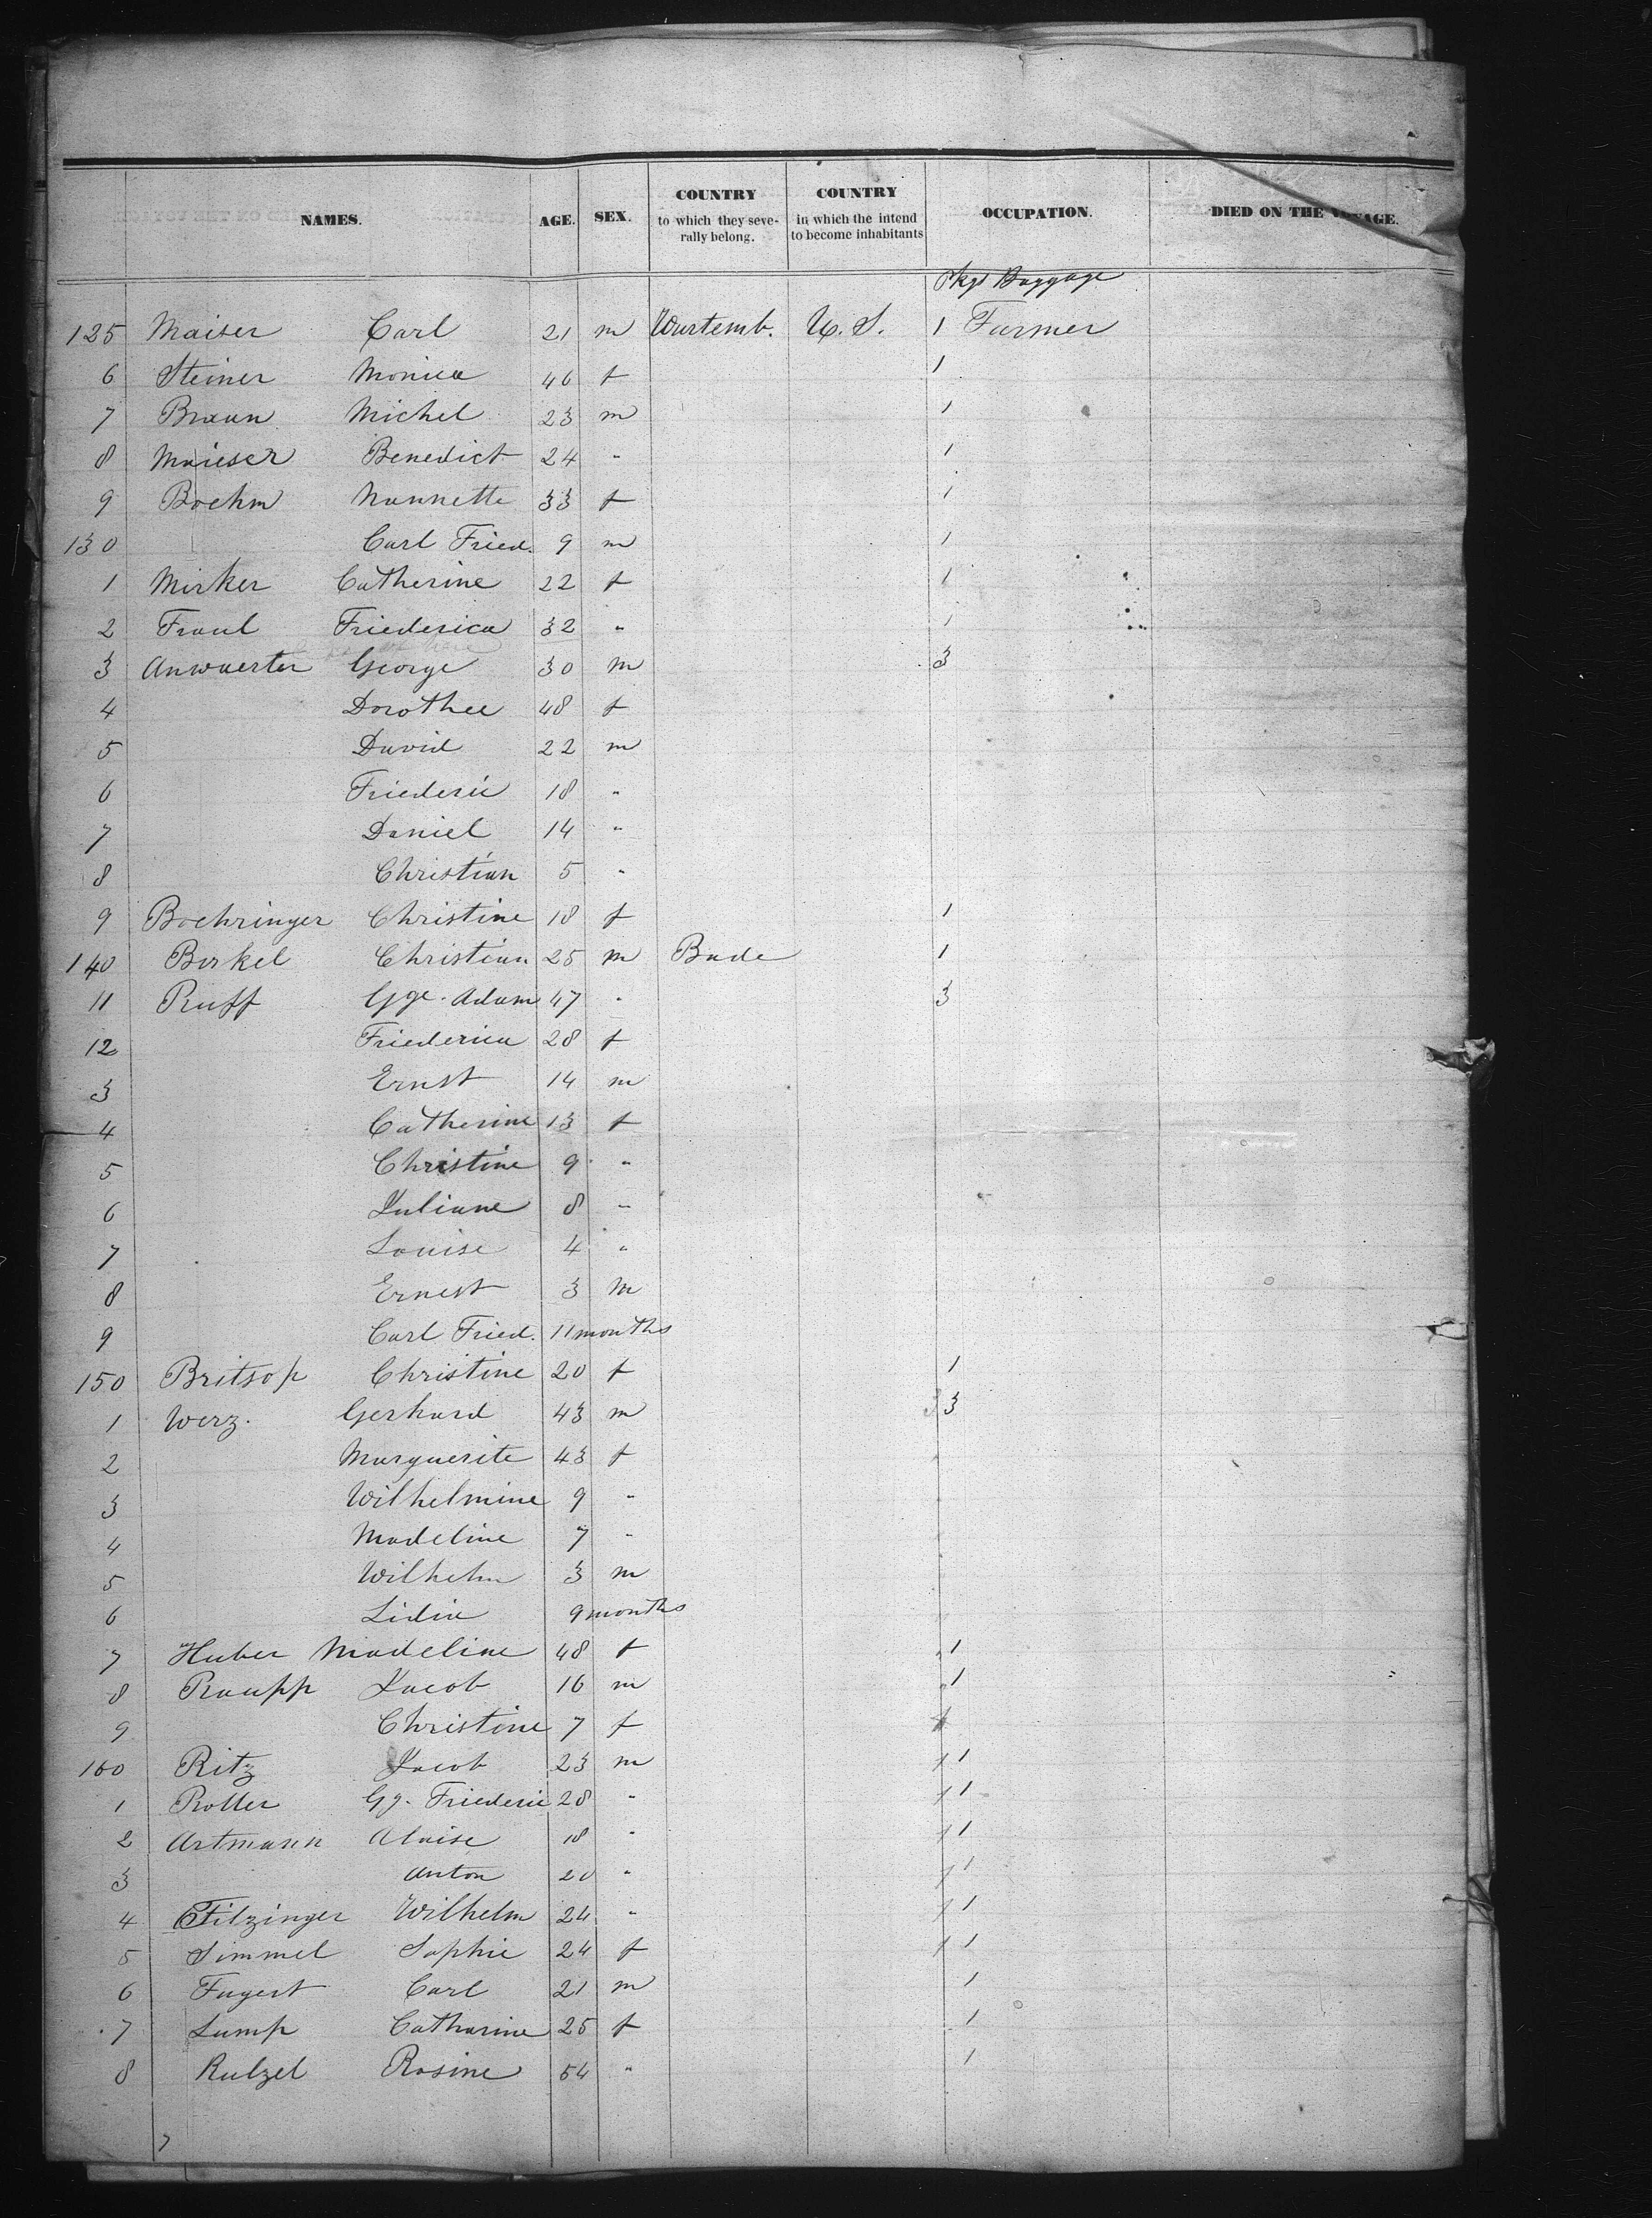 NAMES. AGE. SEX. COUNTRY to which they seve-rally belong. COUNTRY in which the intend to become inhabitants OCCUPATION. DIED ON THE VOYAGE.
Pkgs Baggage
125 Maiser Carl 21 m Wurtemb. U.S. 1 Farmer
6 Steiner Monica 46 f 1
7 Braun Michel 23 m 1
8 Maieser Benedict 24 " 1
9 Boehm Nannette 33 f 1
130 Carl Fried. 9 m 1
1 Mirker Catherine 22 f 1
2 Fraul Friederica 32 " 1
3 Anwaerter George 30 m 3
4 Dorothee 48 f
5 David 22 m
6 Friederic 18 "
7 Daniel 14 "
8 Christian 5 "
9 Boehringer Christine 18 f 1
140 Birkel Christian 25 m Bade 1
11 Ruff Gge. Adam 47 " 3
12 Friederica 28 f
3 Ernst 14 m
4 Catherine 13 f
5 Christine 9 "
6 Juliane 8 "
7 Louise 4 "
8 Ernest 3 m
9 Carl Fried. 11 months
150 Britsop Christine 20 f 1
1 Werz. Gerhard 43 m 3
2 Marguerite 43 f
3 Wilhelmine 9 "
4 Madeline 7 "
5 Wilhelm 3 m
6 Lidia 9 months
7 Huber Madeline 48 f 1
8 Raupp Jacob 16 m 1
9 Christine 7 f
160 Ritz Jacob 23 m 1 1
1 Roller Gg. Friederic 28 " 1 1
2 Artmann Aloise 18 " 1 1
3 Anton 20 " 1 1
4 Filzinger Wilhelm 24 " 1 1
5 Simmel Sophie 24 f 1 1
6 Fayert Carl 21 m 1
7 Lump Catharine 25 f 1
8 Rulzel Rosine 54 " 1
7